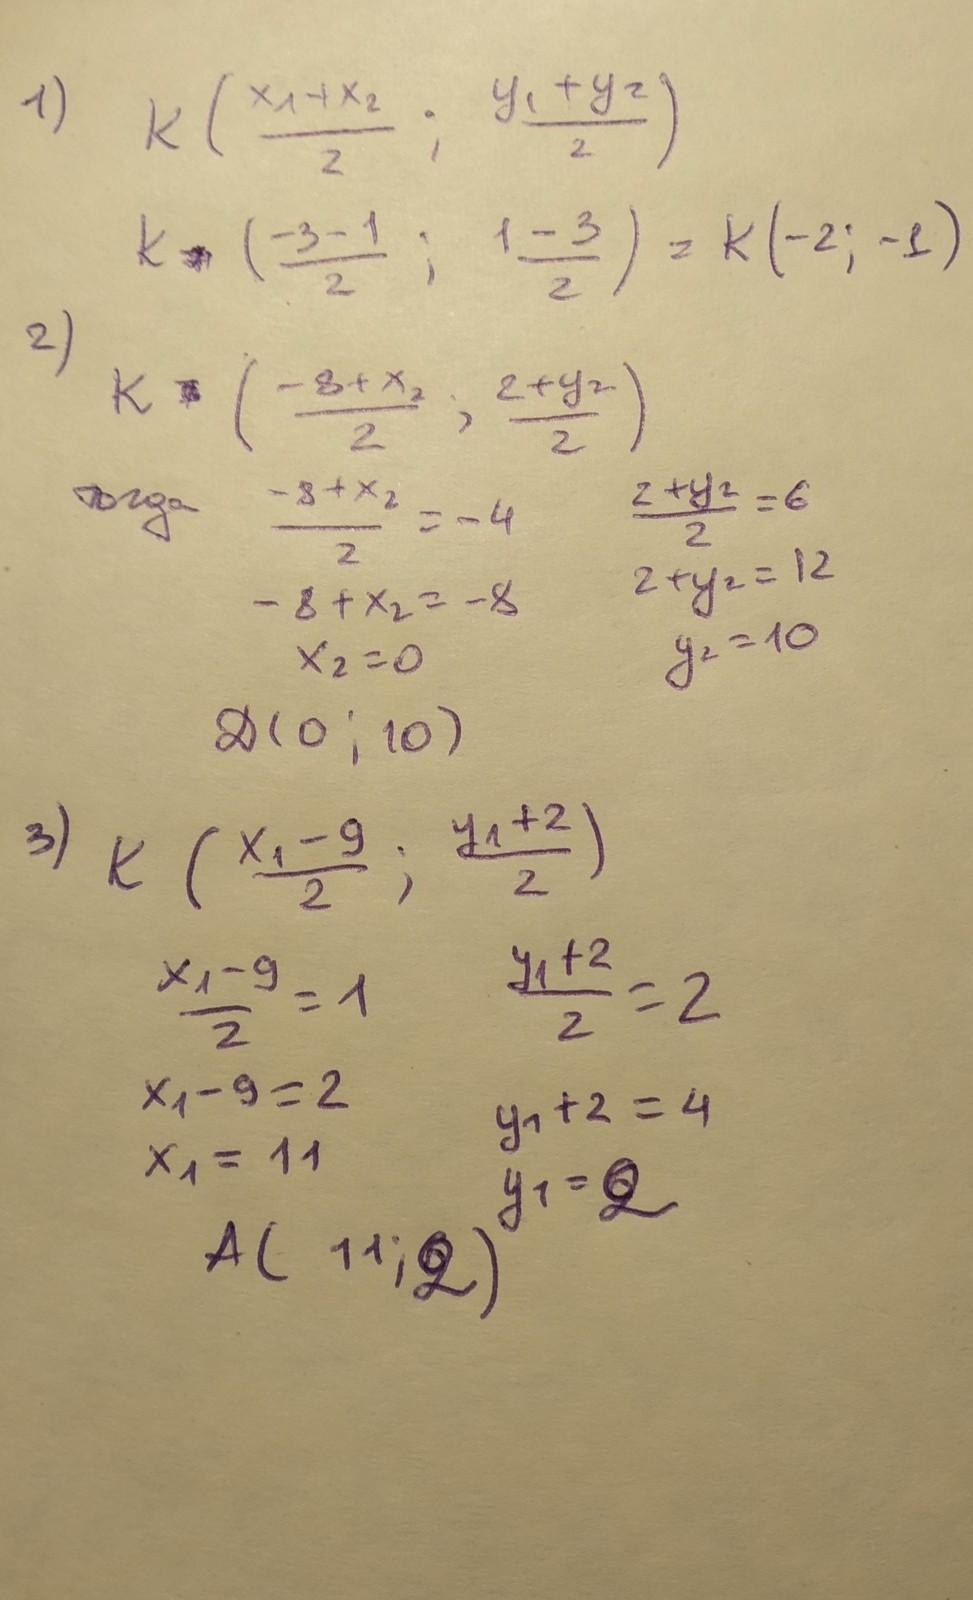 1) K (x₁+x₂/2 ; y₁+y₂/2)
K (-3-1/2 ; 1-3/2) = K(-2; -1)
2)
K (-8+x₂/2 ; 2+y₂/2)
тогда -8+x₂/2 = -4 2+y₂/2 = 6
-8+x₂ = -8 2+y₂ = 12
x₂ = 0 y₂ = 10
D(0 ; 10)
3) K (x₁-9/2 ; y₁+2/2)
x₁-9/2 = 1 y₁+2/2 = 2
x₁-9 = 2 y₁+2 = 4
x₁ = 11 y₁ = 2
A( 11; 2)